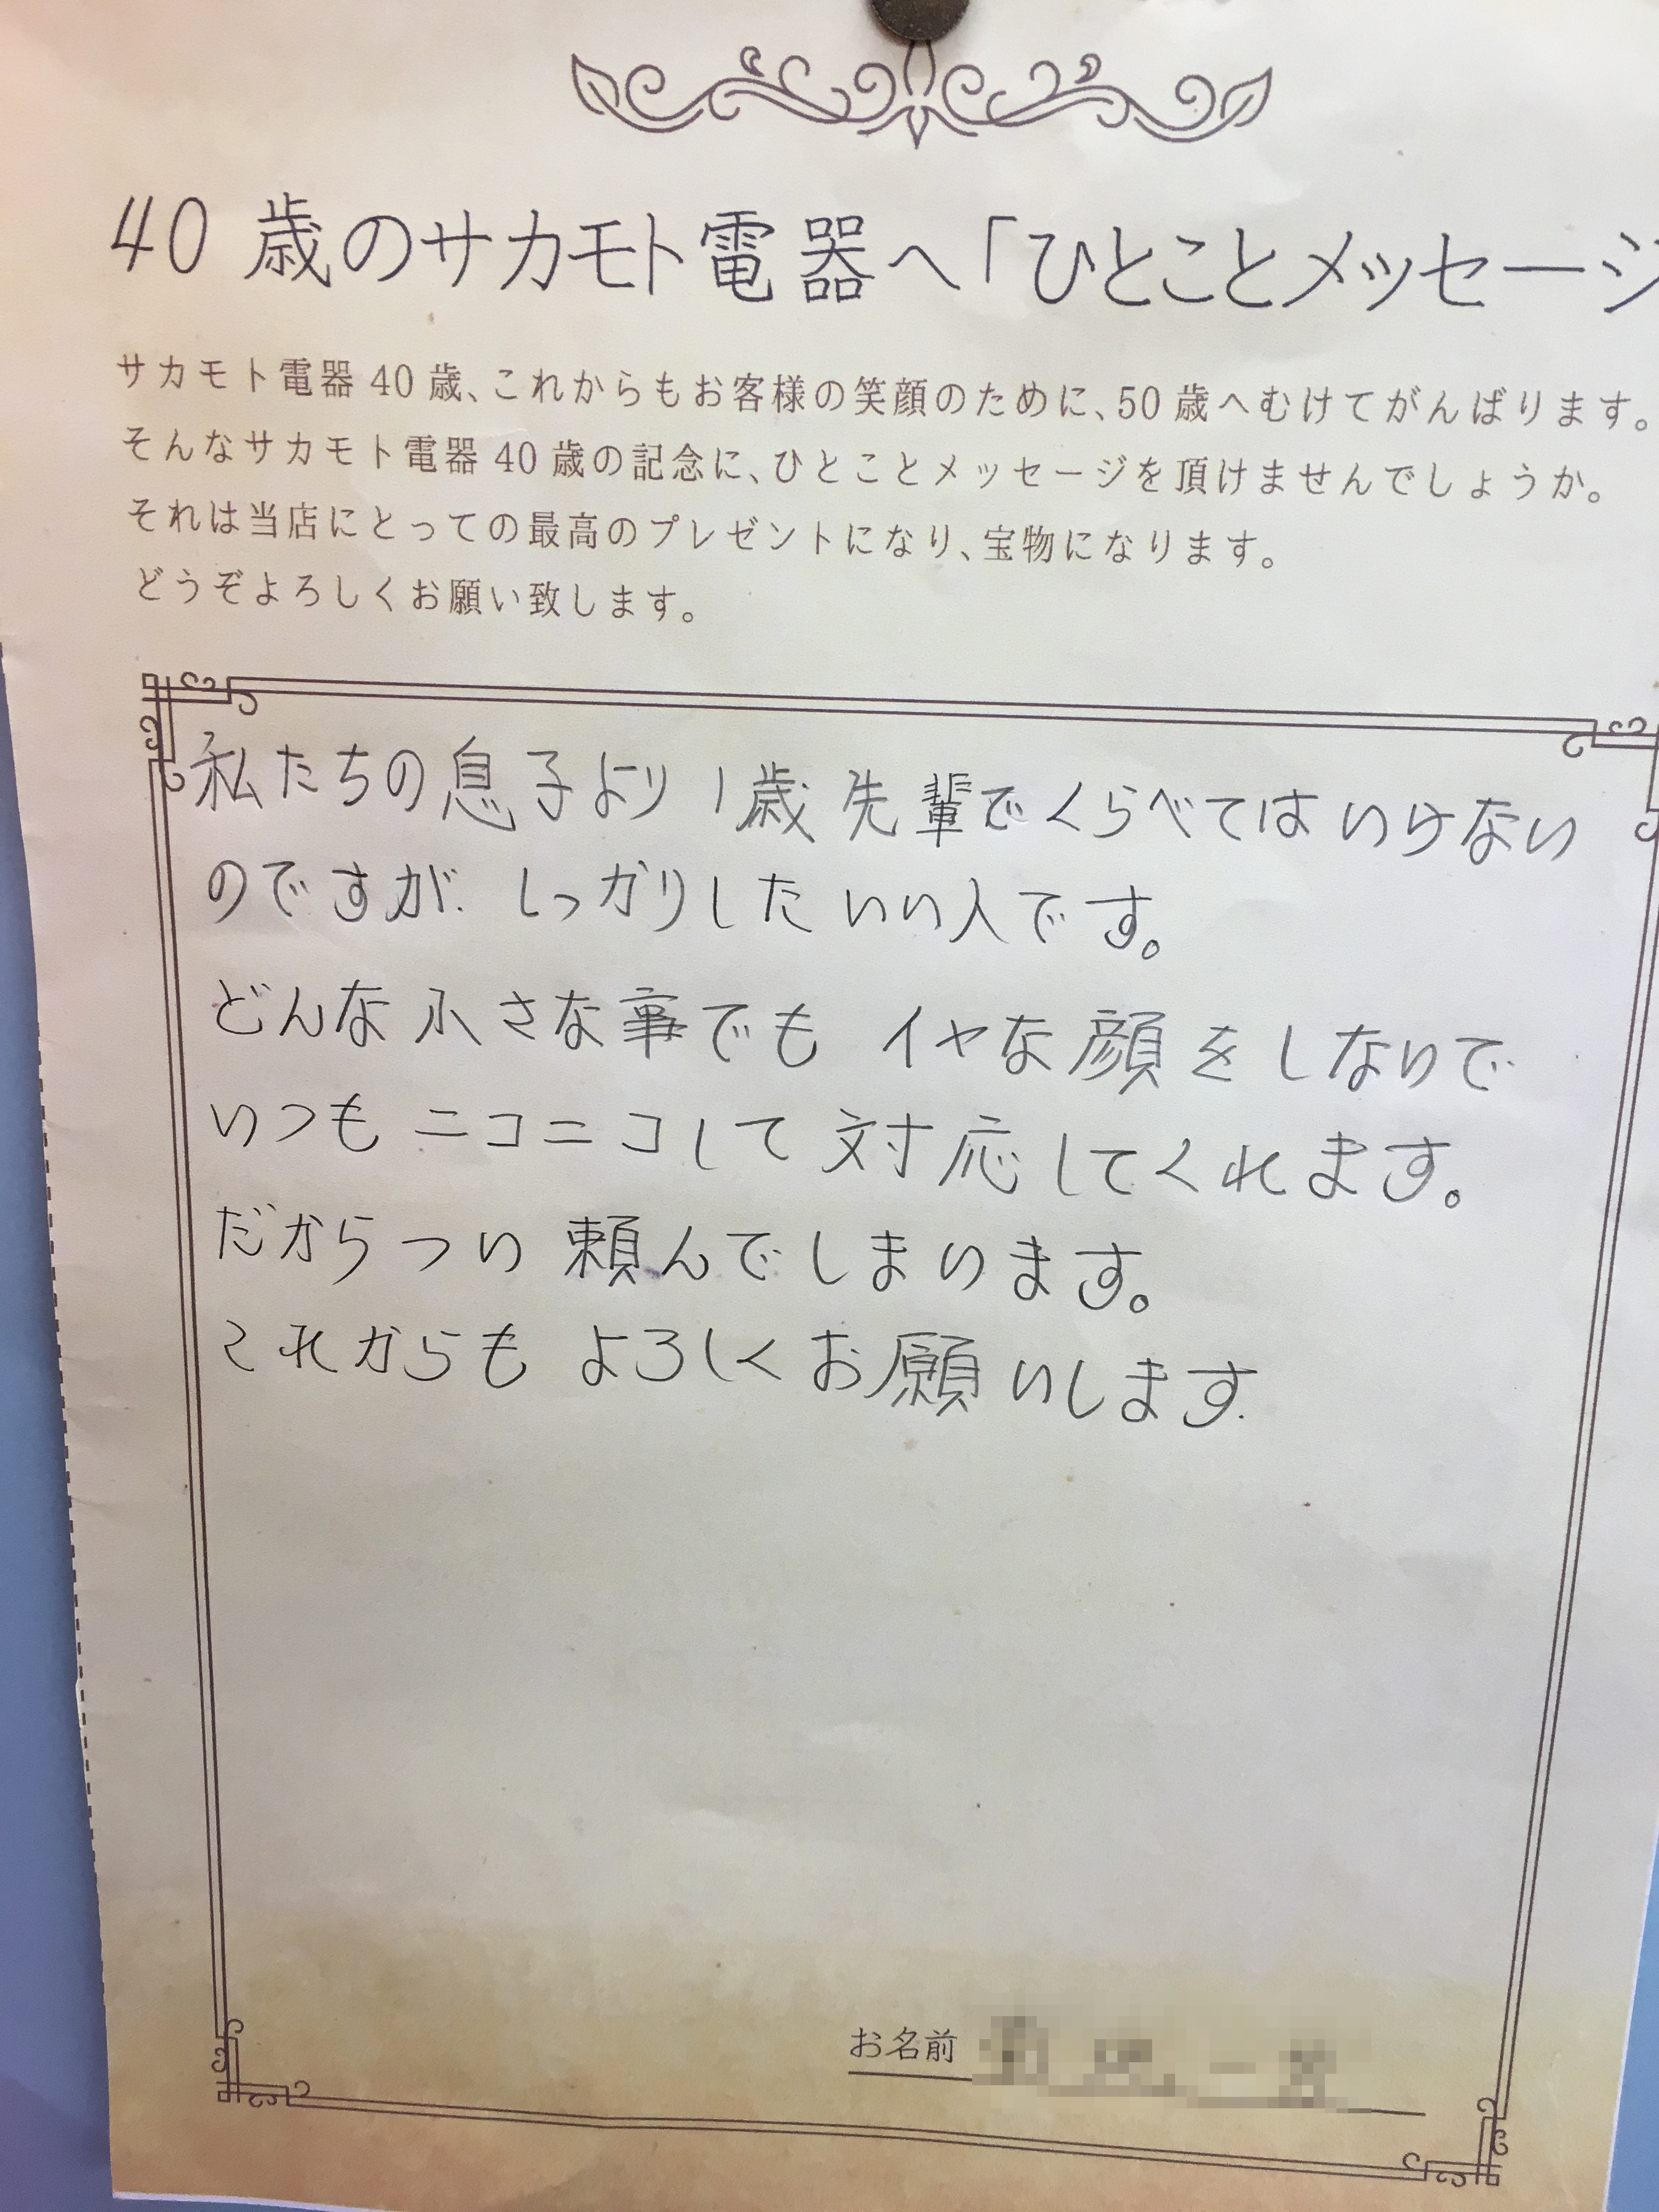 40歳のサカモト電器へ「ひとことメッセージ
サカモト電器40歳、これからもお客様の笑顔のために、50歳へむけてがんばります。
そんなサカモト電器40歳の記念に、ひとことメッセージを頂けませんでしょうか。
それは当店にとっての最高のプレゼントになり、宝物になります。
どうぞよろしくお願い致します。
私たちの息子より1歳先輩でくらべてはいけない
のですが、しっかりしたいい人です。
どんな小さな事でも イヤな顔をしないで
いつも ニコニコして 対応してくれます。
だからつい 頼んでしまいます。
これからも よろしくお願いします.
お名前